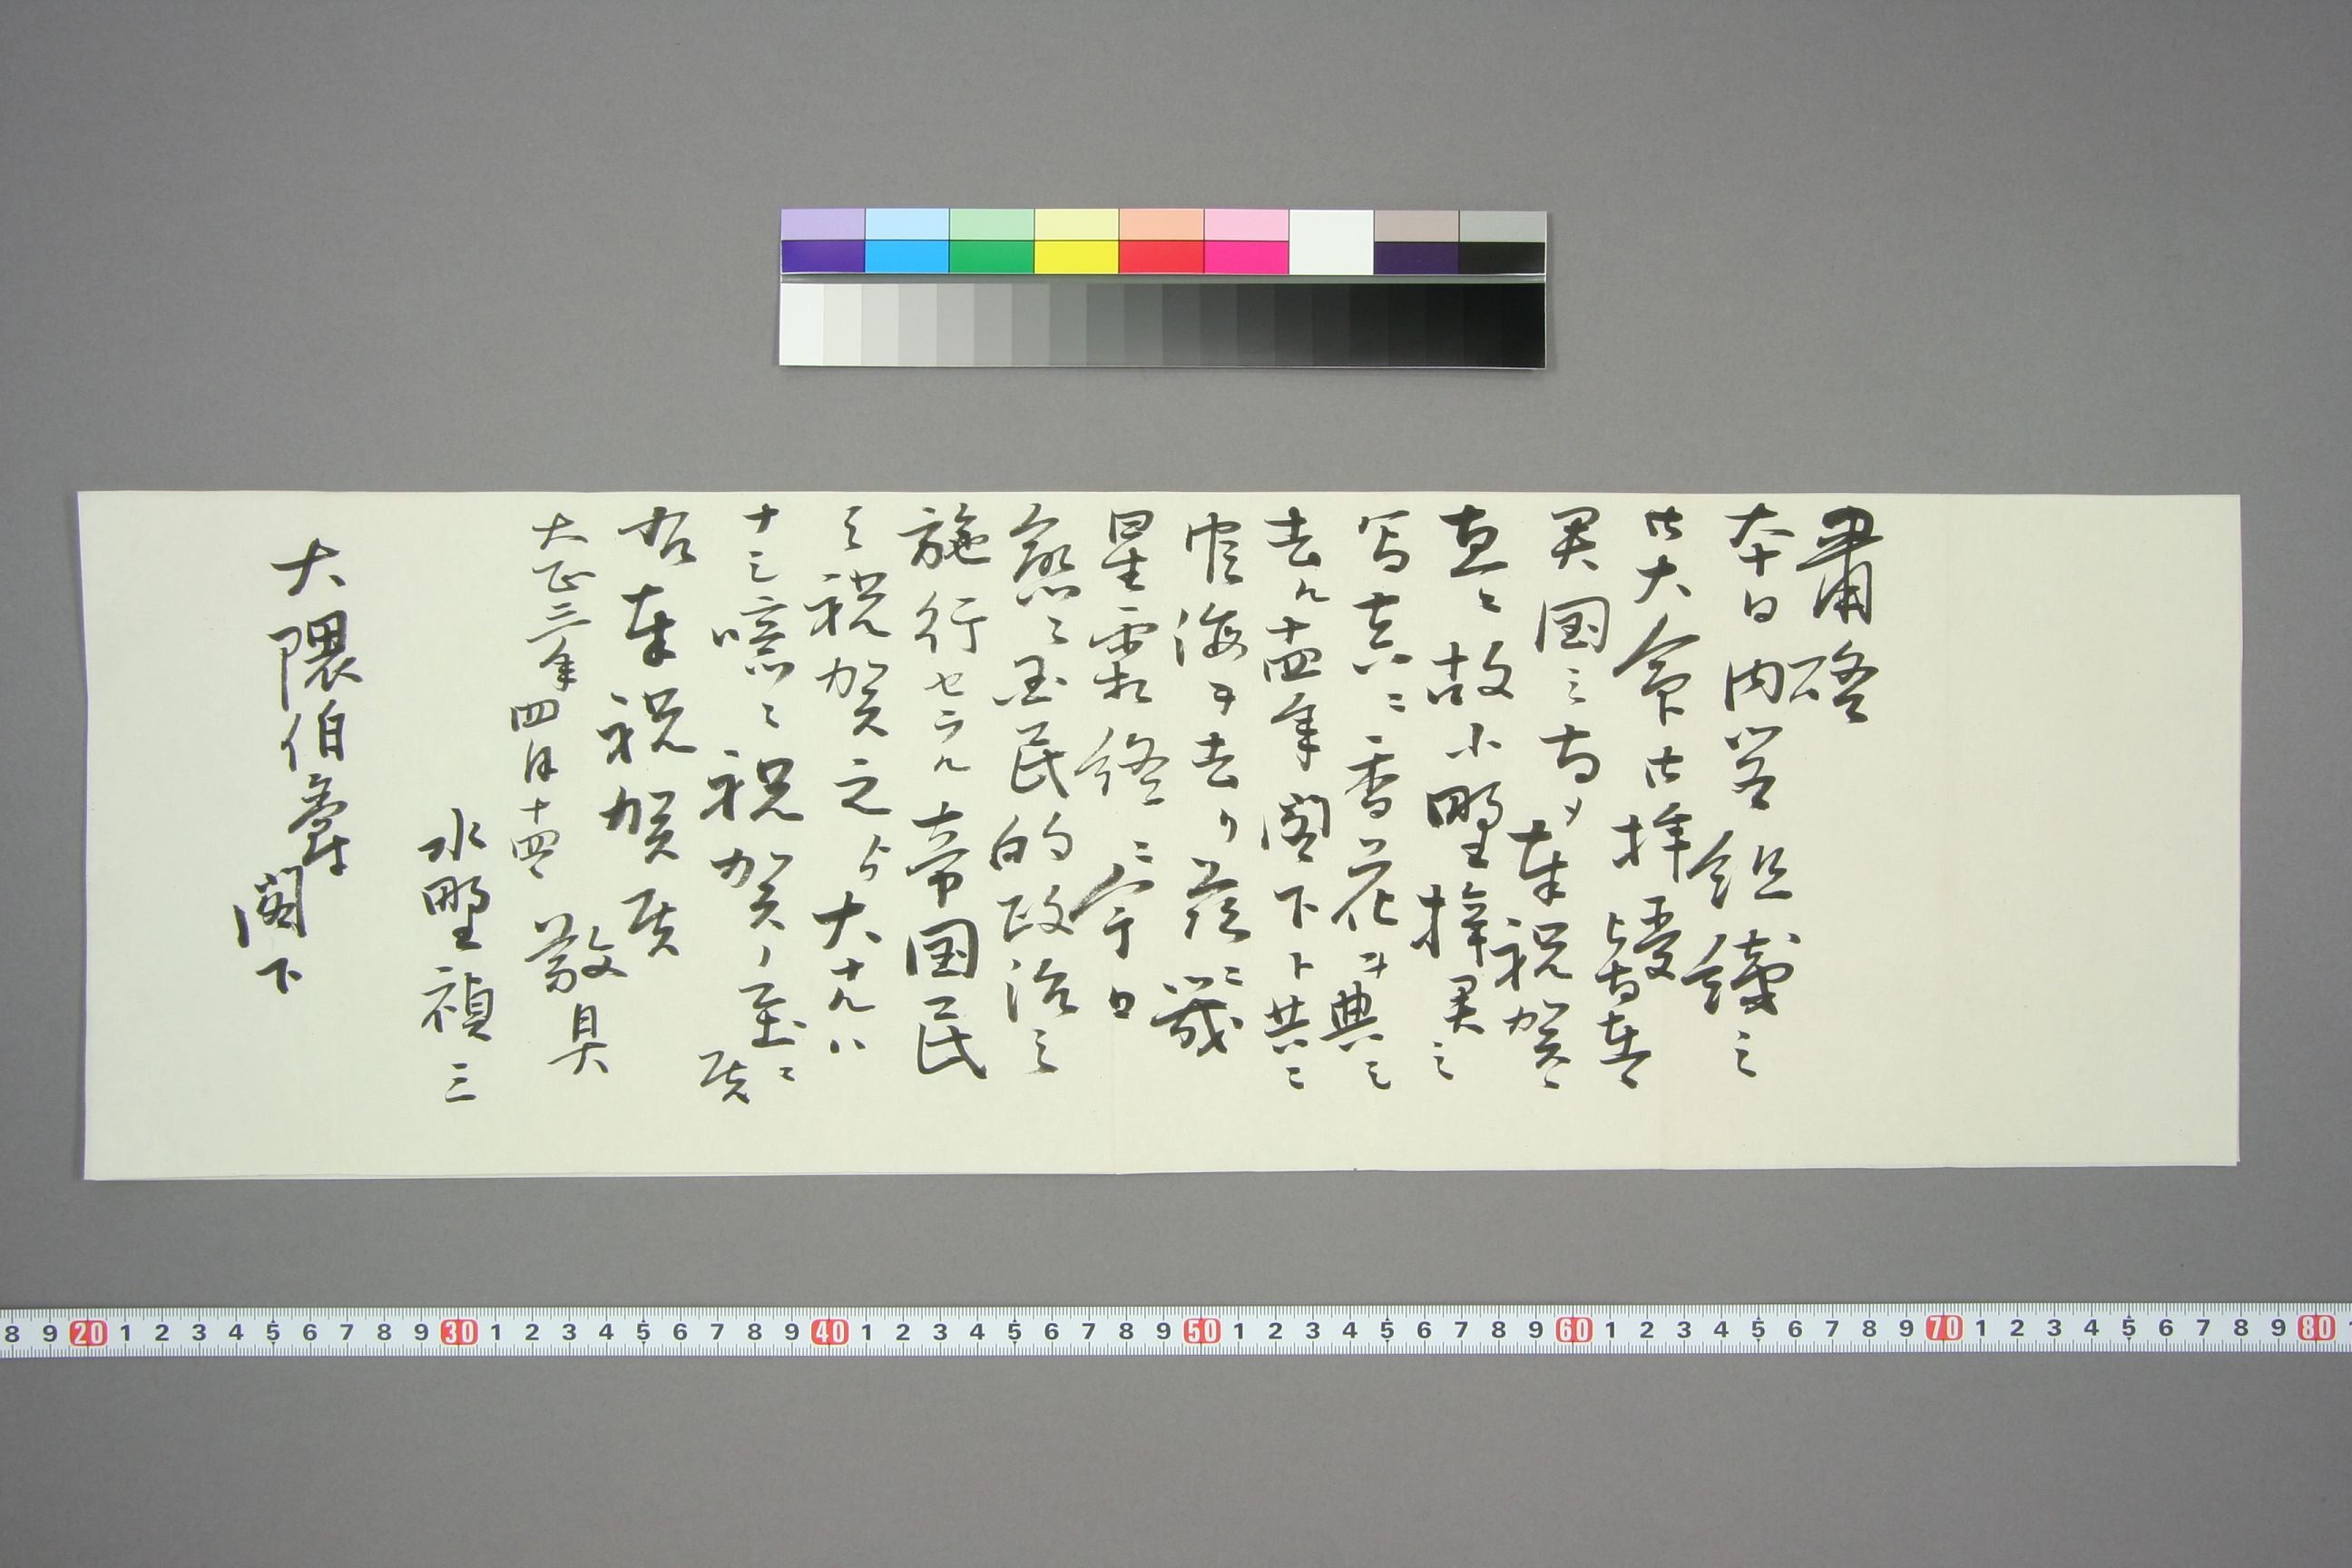 粛啓
本日内閣組織之
御大命御拝受
君国之為メ奉祝賀候
直ニ故小野梓君之
写真ニ香花ヲ典し
去ル十四年閣下ト共ニ
官海ヲ去リ茲ニ幾
星霜終ニ今日
国民的政治之
施行セラル帝国民
之祝賀之より大ナルハ
ナし 祝賀ノ至ニ候
右奉祝賀候
敬具
大正三年四月十四日
水野禎三
大隈伯爵閣下
8 9 20 1 2 3 4 5 6 7 8 9 30 1 2 3 4 5 6 7 8 9 40 1 2 3 4 5 6 7 8 9 50 1 2 3 4 5 6 7 8 9 60 1 2 3 4 5 6 7 8 9 70 1 2 3 4 5 6 7 8 9 80